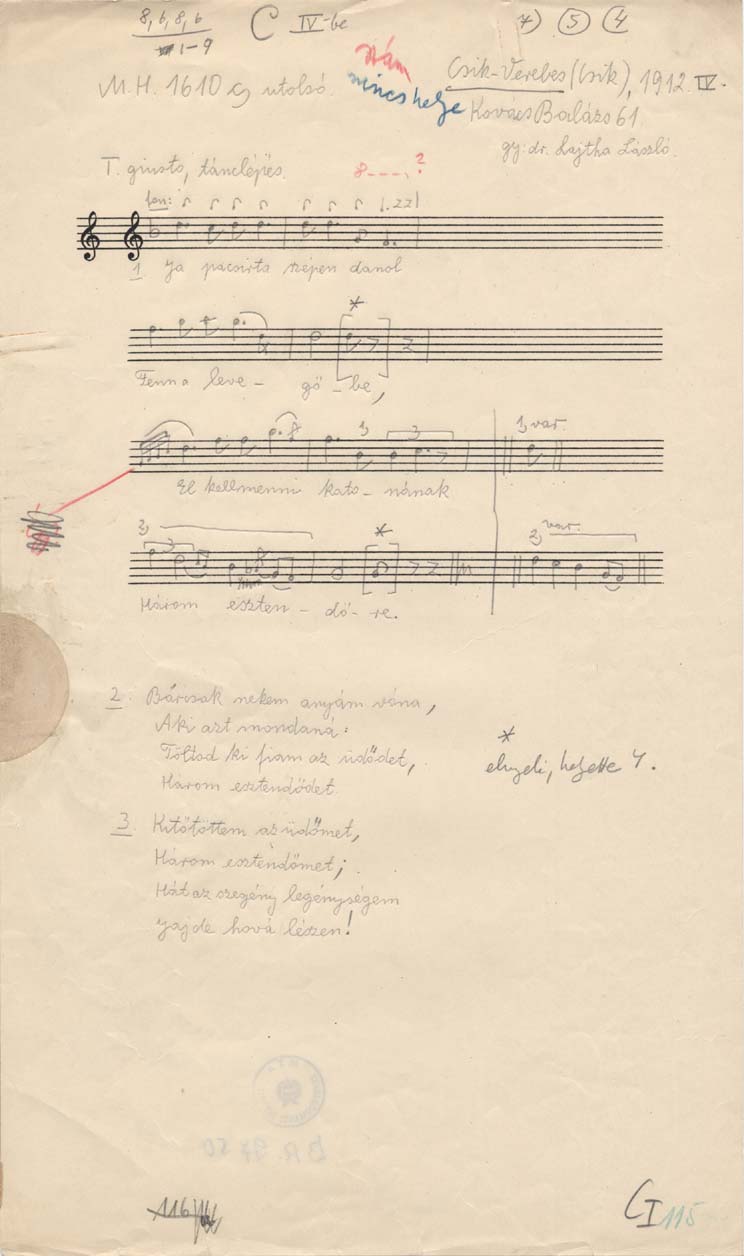 8, 6, 8, 6 C IV-be 7) 5 4
1-9
szám
nincs helye
M.H. 1610 c) utolsó. Csik-Verebes (Csik), 1912. IV.
Kovács Balázs 61
gy: dr. Lajtha László.
T. giusto, tánclépés. 8----, ?
fon:
1 Ja pacsirta szépen danol
*
Fenn a leve - gő - be,
3
1) var.
El kell menni kato - nának
2) 3 * 2) var.
Három eszten - dő - re.
2. Bárcsak nekem anyám vóna,
Aki azt mondaná:
Tőtsd ki fiam az üdődet,
Három esztendődet.
*
elnyeli, helyette 4.
3. Kitőtöttem az üdőmet,
Három esztendőmet;
Hát az szegény legénységem
Jajde hová lészen!
116
CI 115